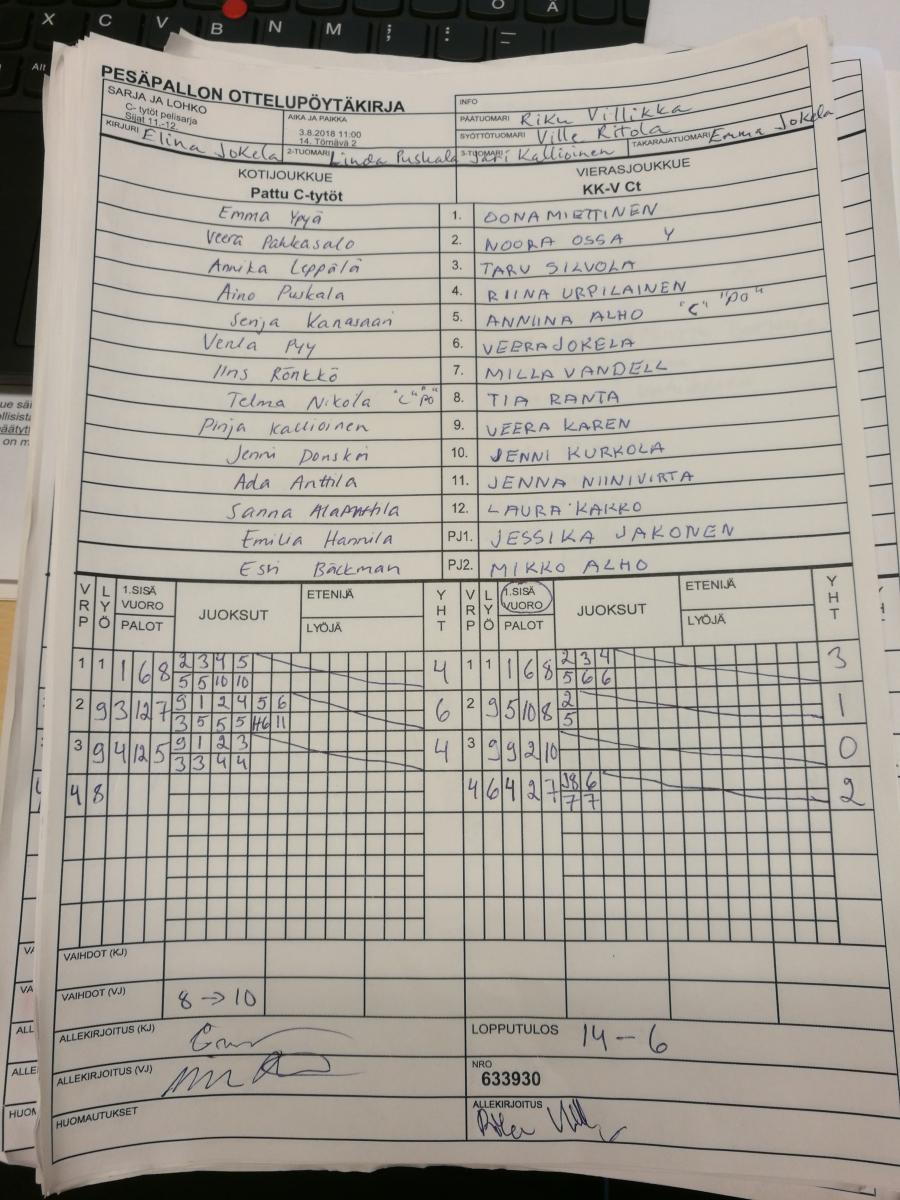 PESÄPALLON OTTELUPÖYTÄKIRJA
SARJA JA LOHKO
C- tytöt pelisarja
Sijat 11.-12.
AIKA JA PAIKKA
3.8.2018 11:00
14. Törnävä 2
INFO
PÄÄTUOMARI Riku Villikka
SYÖTTÖTUOMARI Ville Ritola
TAKARAJATUOMARI Emma Jokela
KIRJURI Elina Jokela
2-TUOMARI Linda Puskala
3-TUOMARI Jari Kallioinen
KOTIJOUKKUE
Pattu C-tytöt
VIERASJOUKKUE
KK-V Ct
Emma Ypyä 1. OONA MIETTINEN
Veera Pahkasalo 2. NOORA OSSA Y
Annika Leppälä 3. TARU SILVOLA
Aino Puskala 4. RIINA URPILAINEN
Senja Kanasaari 5. ANNIINA ALHO "C" "PO"
Venla Pyy 6. VEERA JOKELA
Iiris Rönkkö 7. MILLA VANDELL
Telma Nikola "C" "PO" 8. TIA RANTA
Pinja Kallioinen 9. VEERA KAREN
Jenni Donskoi 10. JENNI KURKOLA
Ada Anttila 11. JENNA NIINIVIRTA
Sanna 12. LAURA KAKKO
Emilia Hannila PJ1. JESSIKA JAKONEN
Esri Bäckman PJ2. MIKKO ALHO
VRP LYÖ 1.SISÄ VUORO PALOT JUOKSUT ETENIJÄ LYÖJÄ YHT VRP LYÖ 1.SISÄ VUORO PALOT JUOKSUT ETENIJÄ LYÖJÄ YHT
1 1 1 6 8 2 3 4 5 4 1 1 1 6 8 2 3 4 3
5 5 10 10 5 6 6
2 9 3 12 7 9 1 2 4 5 6 6 2 9 5 10 8 2 1
3 5 5 5 11 5
3 9 4 12 5 9 1 2 3 4 3 9 9 2 10 0
3 3 4 4
4 8 4 6 4 2 7 6 2
7 7
VAIHDOT (KJ)
VAIHDOT (VJ) 8 → 10
ALLEKIRJOITUS (KJ)
LOPPUTULOS 14 - 6
ALLEKIRJOITUS (VJ)
NRO
633930
HUOMAUTUKSET
ALLEKIRJOITUS